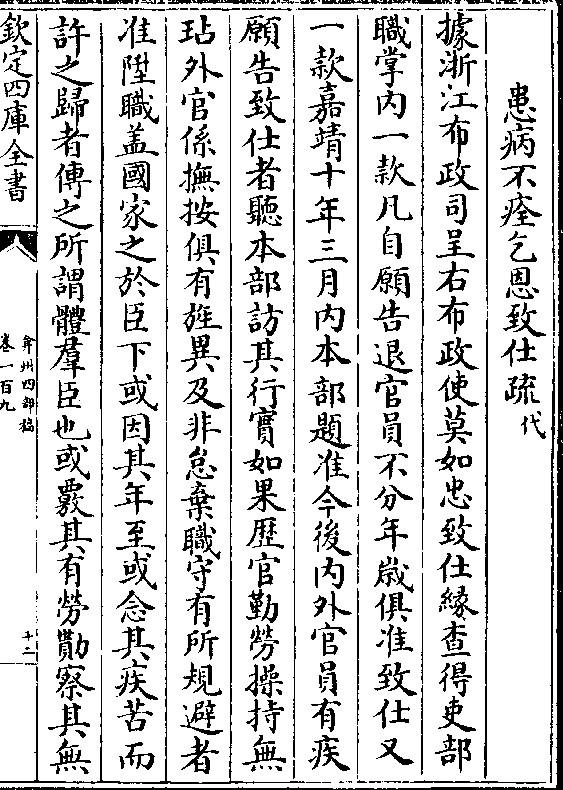 患病不痊乞恩致仕疏代
據浙江布政司呈右布政使莫如忠致仕緣查得吏部
職掌內一款凡自願告退官員不分年歲俱准致仕又
一款嘉靖十年三月內本部題准今後內外官員有疾
願告致仕者聽本部訪其行實如果歷官勤勞操持無
玷外官係撫按俱有旌異及非怠棄職守有所規避者
准陞職盖國家之於臣下或因其年至或念其疾苦而
許之歸者傳之所謂體羣臣也或覈其有勞勩察其無
欽定四庫全書
弇州四部稿
卷一百九
十二